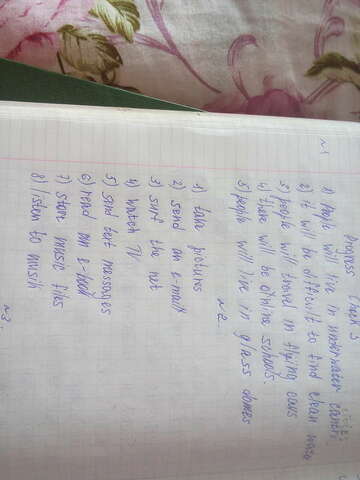 Progress Check 3
№1
1) People will live in underwater
cities.
2) it will be difficult to find clean water
3) people will travel in flying cars
4) there will be online schools.
5) people will live in glass domes
№2.
1) take pictures
2) send an e-mail
3) surf the net
4) watch TV.
5) send text massages
6) read an e-book
7) store music files
8) listen to musik
№3.